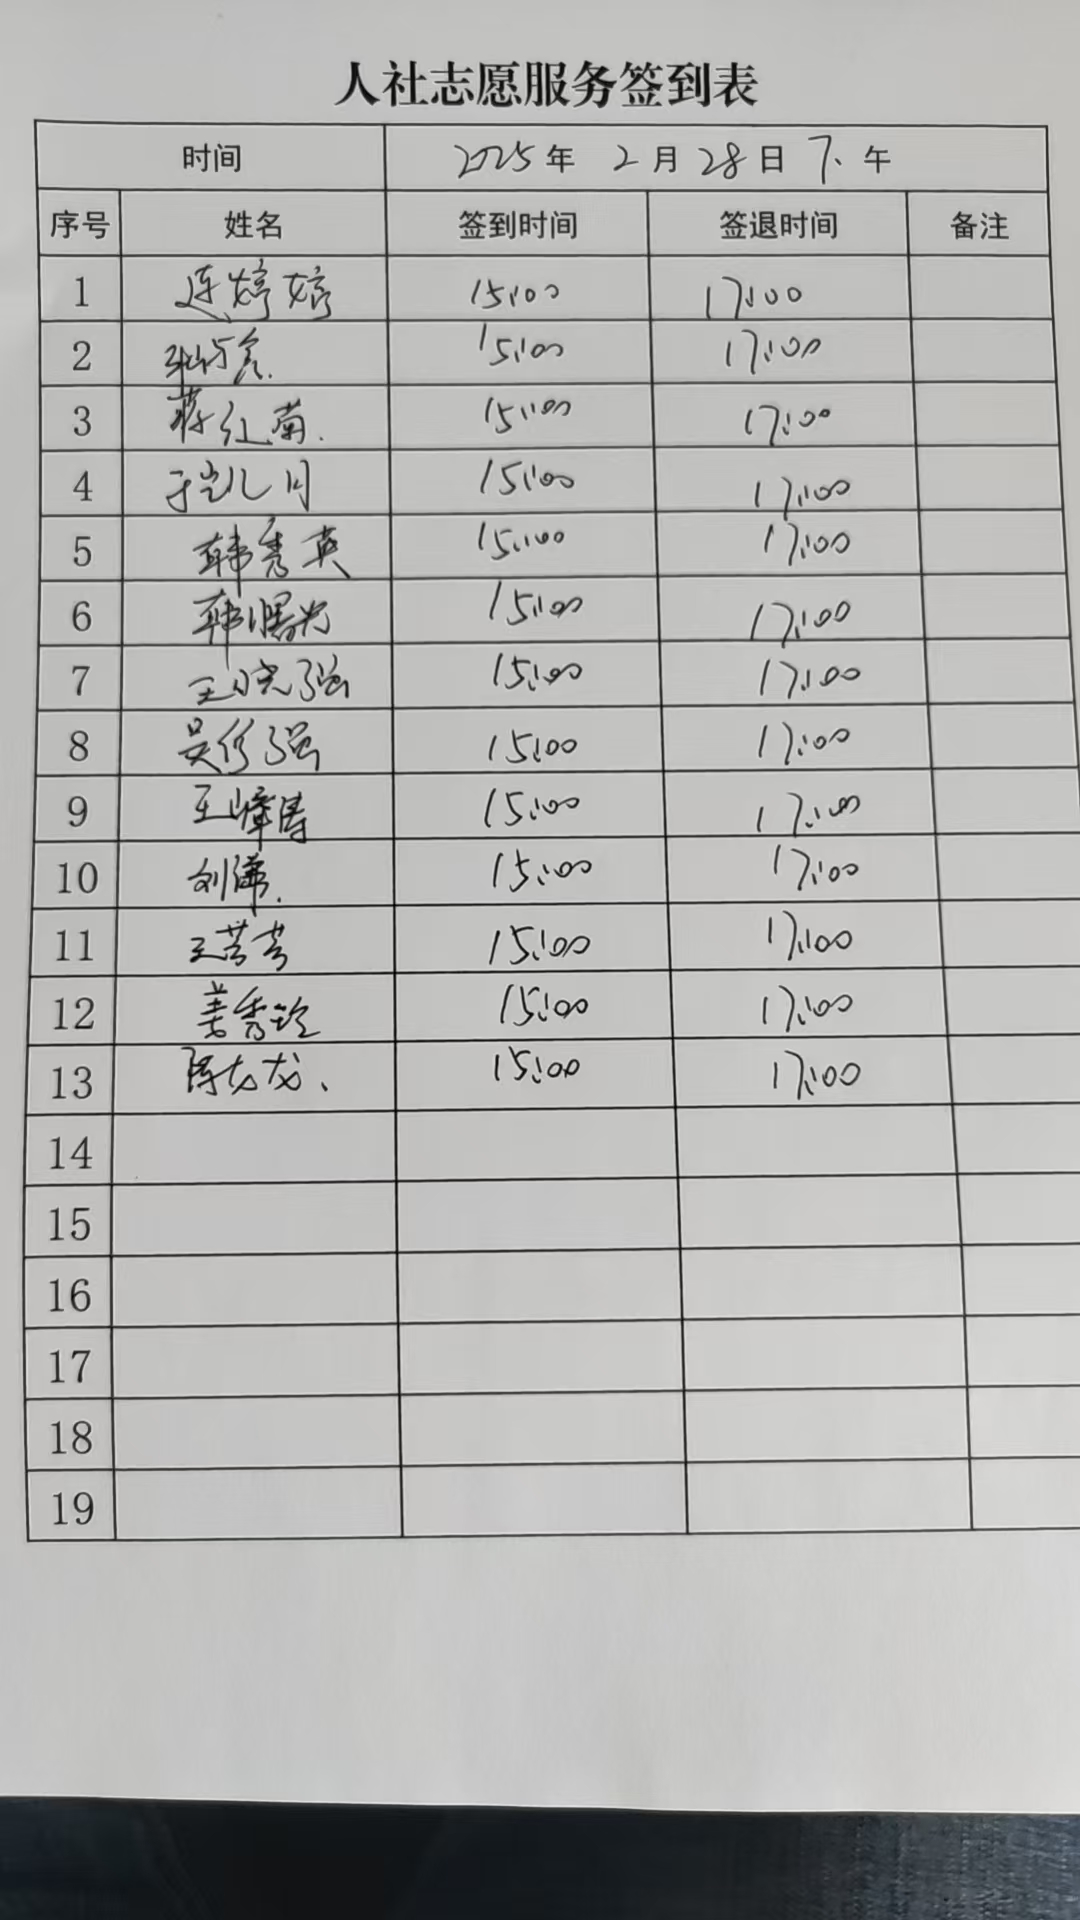 人社志愿服务签到表
时间 2025年 2月28日 下午
序号 姓名 签到时间 签退时间 备注
1 连婷婷 15:00 17:00
2 15:00 17:00
3 蒋红菊. 15:00 17:00
4 于凯月 15:00 17:00
5 韩秀英 15:00 17:00
6 韩曙光 15:00 17:00
7 王晓强 15:00 17:00
8 吴修强 15:00 17:00
9 王嶂涛 15:00 17:00
10 刘 15:00 17:00
11 王芳芳 15:00 17:00
12 姜秀玲 15:00 17:00
13 陈龙龙、 15:00 17:00
14
15
16
17
18
19